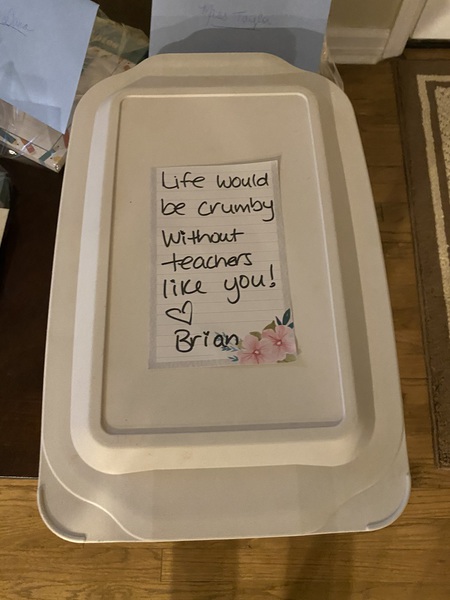 Life would
be crumby
Without
teachers
like you!
♡
Brian